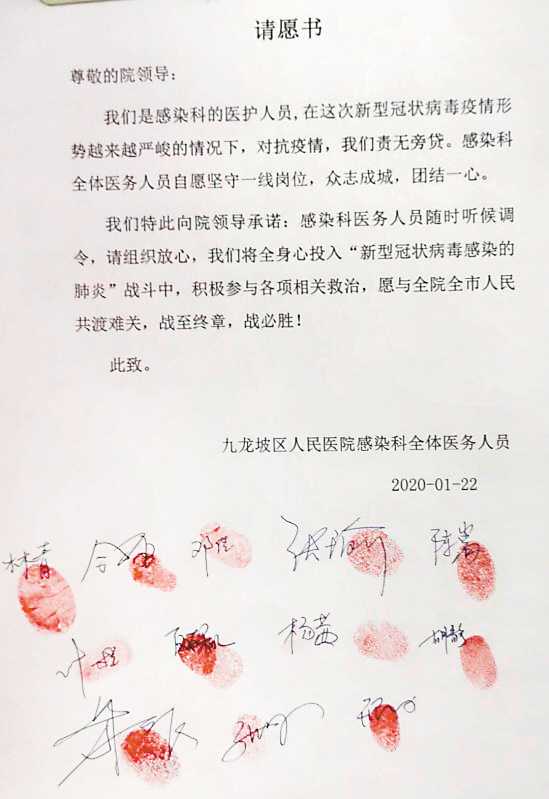 请愿书
尊敬的院领导：
我们是感染科的医护人员,在这次新型冠状病毒疫情形
势越来越严峻的情况下，对抗疫情，我们责无旁贷。感染科
全体医务人员自愿坚守一线岗位，众志成城，团结一心。
我们特此向院领导承诺：感染科医务人员随时听候调
令，请组织放心，我们将全身心投入“新型冠状病毒感染的
肺炎”战斗中，积极参与各项相关救治，愿与全院全市人民
共渡难关，战至终章，战必胜！
此致。
九龙坡区人民医院感染科全体医务人员
2020-01-22
林青
杨茜